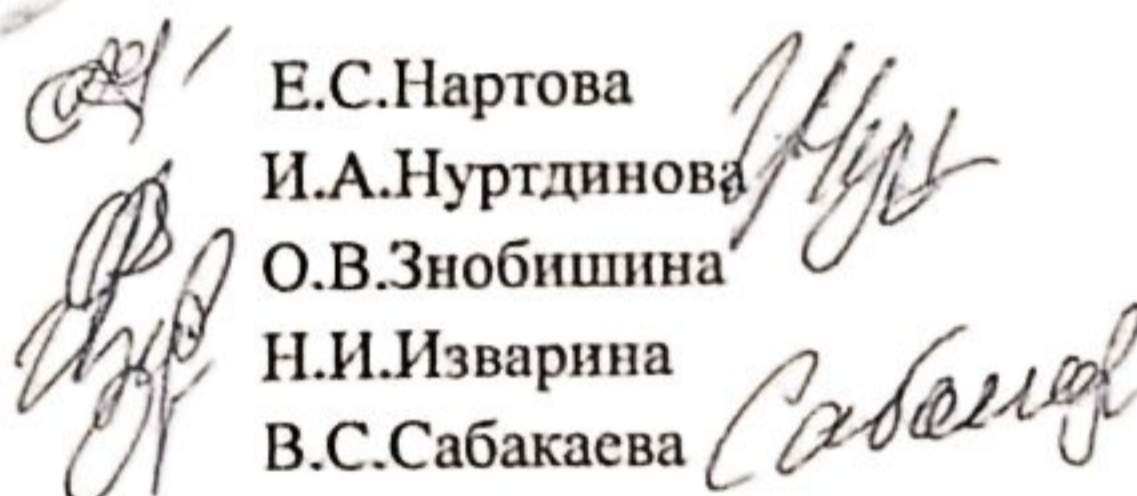 Е.С.Нартова
И.А.Нуртдинова
О.В.Знобишина
Н.И.Изварина
В.С.Сабакаева